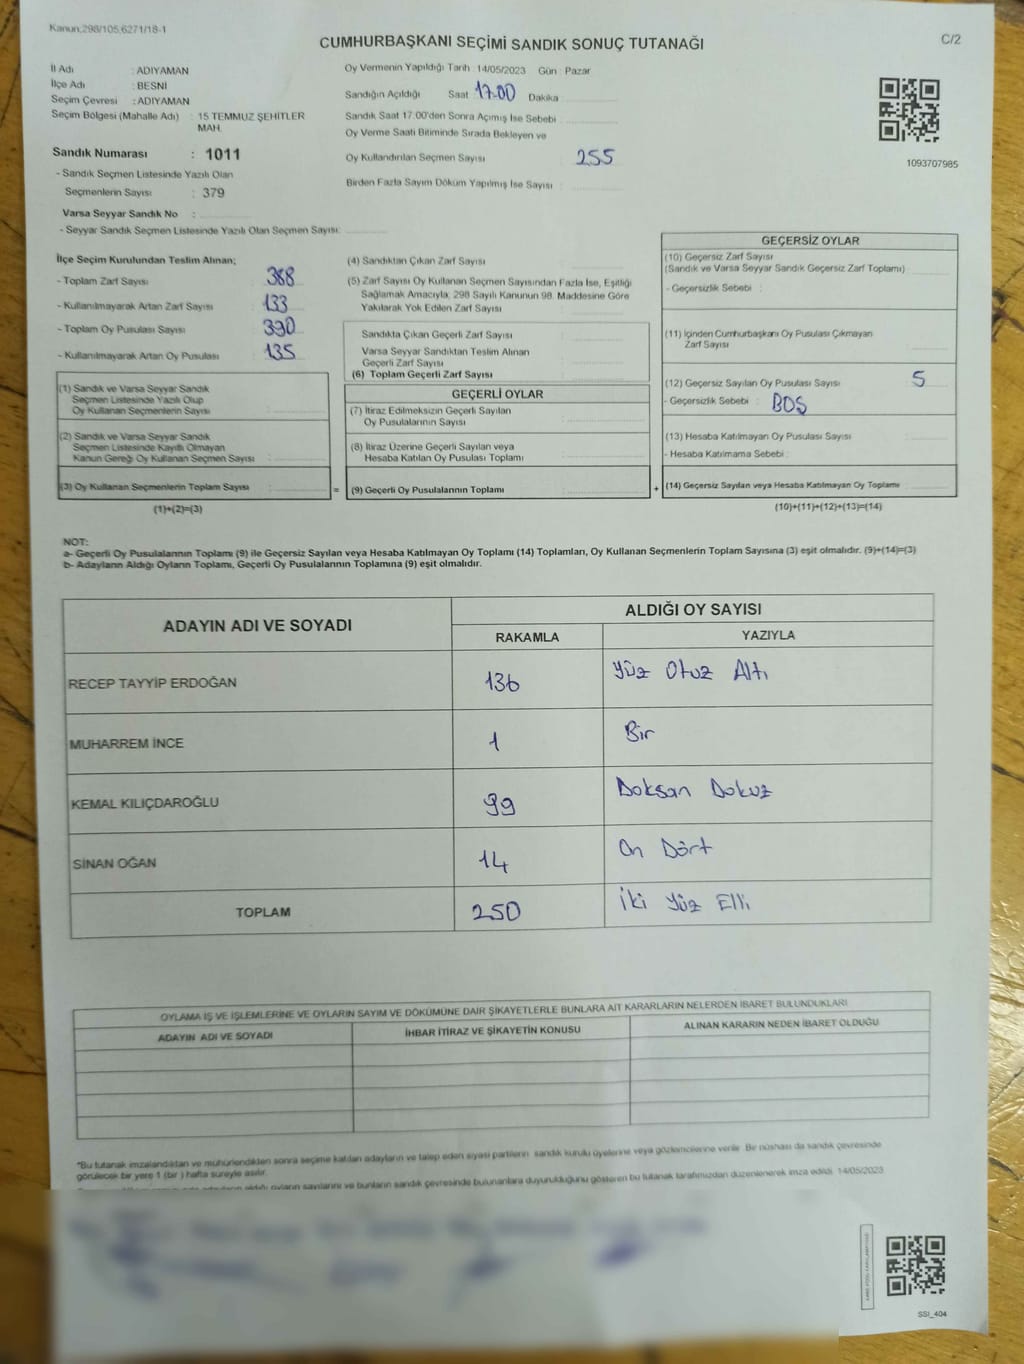 Kanun;298/105,6271/18-1
C/2
CUMHURBAŞKANI SEÇİMİ SANDIK SONUÇ TUTANAĞI
İl Adı : ADIYAMAN
İlçe Adı : BESNİ
Seçim Çevresi : ADIYAMAN
Seçim Bölgesi (Mahalle Adı) : 15 TEMMUZ ŞEHİTLER
MAH.
Sandık Numarası : 1011
- Sandık Seçmen Listesinde Yazılı Olan
Seçmenlerin Sayısı : 379
Varsa Seyyar Sandık No :
- Seyyar Sandık Seçmen Listesinde Yazılı Olan Seçmen Sayısı:
Oy Vermenin Yapıldığı Tarih : 14/05/2023 Gün : Pazar
Sandığın Açıldığı Saat 17.00 Dakika
Sandık Saat 17.00'den Sonra Açımış İse Sebebi :
Oy Verme Saati Bitiminde Sırada Bekleyen ve
Oy Kullandırılan Seçmen Sayısı 255
Birden Fazla Sayım Döküm Yapılmış İse Sayısı :
1093707985
İlçe Seçim Kurulundan Teslim Alınan;
- Toplam Zarf Sayısı : 388
- Kullanılmayarak Artan Zarf Sayısı : 133
- Toplam Oy Pusulası Sayısı : 390
- Kullanılmayarak Artan Oy Pusulası : 135
(1) Sandık ve Varsa Seyyar Sandık
Seçmen Listesinde Yazılı Olup
Oy Kullanan Seçmenlerin Sayısı :
(2) Sandık ve Varsa Seyyar Sandık
Seçmen Listesinde Kayıtlı Olmayan
Kanun Gereği Oy Kullanan Seçmen Sayısı :
(3) Oy Kullanan Seçmenlerin Toplam Sayısı : =
(1)+(2)=(3)
(4) Sandıktan Çıkan Zarf Sayısı :
(5) Zarf Sayısı Oy Kullanan Seçmen Sayısından Fazla İse, Eşitliği
Sağlamak Amacıyla; 298 Sayılı Kanunun 98. Maddesine Göre
Yakılarak Yok Edilen Zarf Sayısı :
Sandıkta Çıkan Geçerli Zarf Sayısı :
Varsa Seyyar Sandıktan Teslim Alınan
Geçerli Zarf Sayısı :
(6) Toplam Geçerli Zarf Sayısı :
GEÇERLİ OYLAR
(7) İtiraz Edilmeksizin Geçerli Sayılan
Oy Pusulalarının Sayısı :
(8) İtiraz Üzerine Geçerli Sayılan veya
Hesaba Katılan Oy Pusulası Toplamı :
(9) Geçerli Oy Pusulalarının Toplamı : +
GEÇERSİZ OYLAR
(10) Geçersiz Zarf Sayısı
(Sandık ve Varsa Seyyar Sandık Geçersiz Zarf Toplamı)
- Geçersizlik Sebebi :
(11) İçinden Cumhurbaşkanı Oy Pusulası Çıkmayan
Zarf Sayısı
(12) Geçersiz Sayılan Oy Pusulası Sayısı : 5
- Geçersizlik Sebebi : BOŞ
(13) Hesaba Katılmayan Oy Pusulası Sayısı :
- Hesaba Katılmama Sebebi :
(14) Geçersiz Sayılan veya Hesaba Katılmayan Oy Toplamı :
(10)+(11)+(12)+(13)=(14)
NOT:
a- Geçerli Oy Pusulalarının Toplamı (9) ile Geçersiz Sayılan veya Hesaba Katılmayan Oy Toplamı (14) Toplamları, Oy Kullanan Seçmenlerin Toplam Sayısına (3) eşit olmalıdır. (9)+(14)=(3)
b- Adayların Aldığı Oyların Toplamı, Geçerli Oy Pusulalarının Toplamına (9) eşit olmalıdır.
ADAYIN ADI VE SOYADI
ALDIĞI OY SAYISI
RAKAMLA YAZIYLA
RECEP TAYYİP ERDOĞAN 136 Yüz Otuz Altı
MUHARREM İNCE 1 Bir
KEMAL KILIÇDAROĞLU 99 Doksan Dokuz
SİNAN OĞAN 14 On Dört
TOPLAM 250 İki Yüz Elli
OYLAMA İŞ VE İŞLEMLERİNE VE OYLARIN SAYIM VE DÖKÜMÜNE DAİR ŞİKAYETLERLE BUNLARA AİT KARARLARIN NELERDEN İBARET BULUNDUKLARI
ADAYIN ADI VE SOYADI İHBAR İTİRAZ VE ŞİKAYETİN KONUSU ALINAN KARARIN NEDEN İBARET OLDUĞU
*Bu tutanak imzalandıktan ve mühürlendikten sonra seçime katılan adayların ve talep eden siyasi partilerin sandık kurulu üyelerine veya gözlemcilerine verilir. Bir nüshası da sandık çevresinde
görülecek bir yere 1 (bir) hafta süreyle asılır.
adayların aldığı oyların sayılarını ve bunların sandık çevresinde bulunanlara duyurulduğunu gösteren bu tutanak tarafımızdan düzenlenerek imza edildi. 14/05/2023
SSI_404